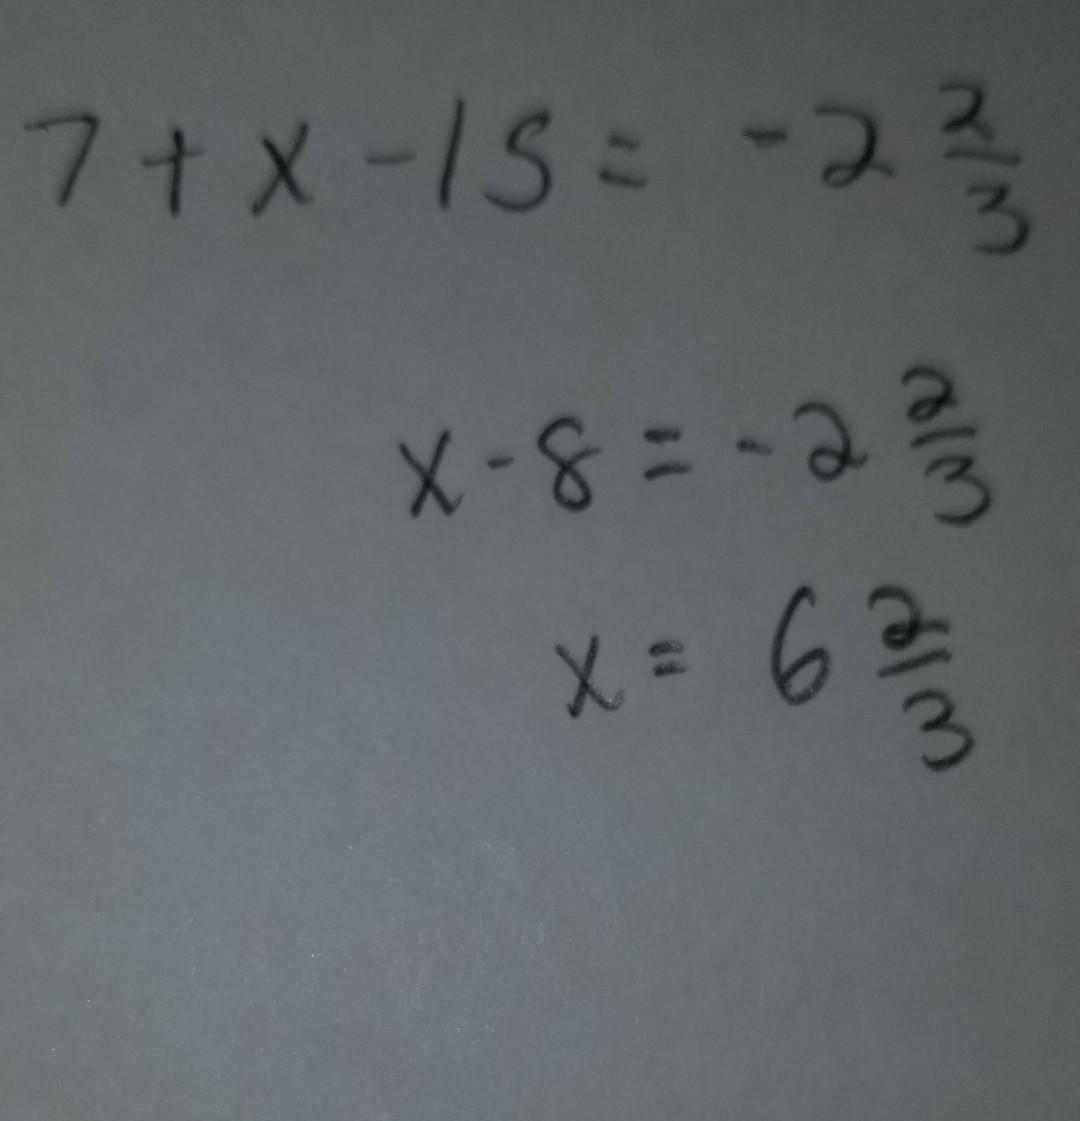 7 + x - 15 = -2 2/3
x - 8 = -2 2/3
x = 6 2/3